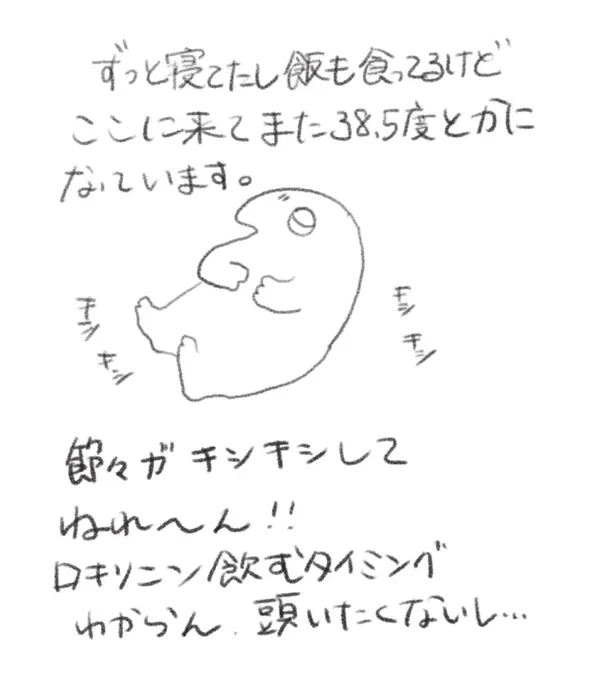 ずっと寝てたし飯も食ってるけど
ここに来てまた38.5度とかに
なっています。
キシ
キシ
キシ
キシ
節々がキシキシして
ねれ〜ん!!
ロキソニン飲むタイミング
わからん.頭いたくないし…